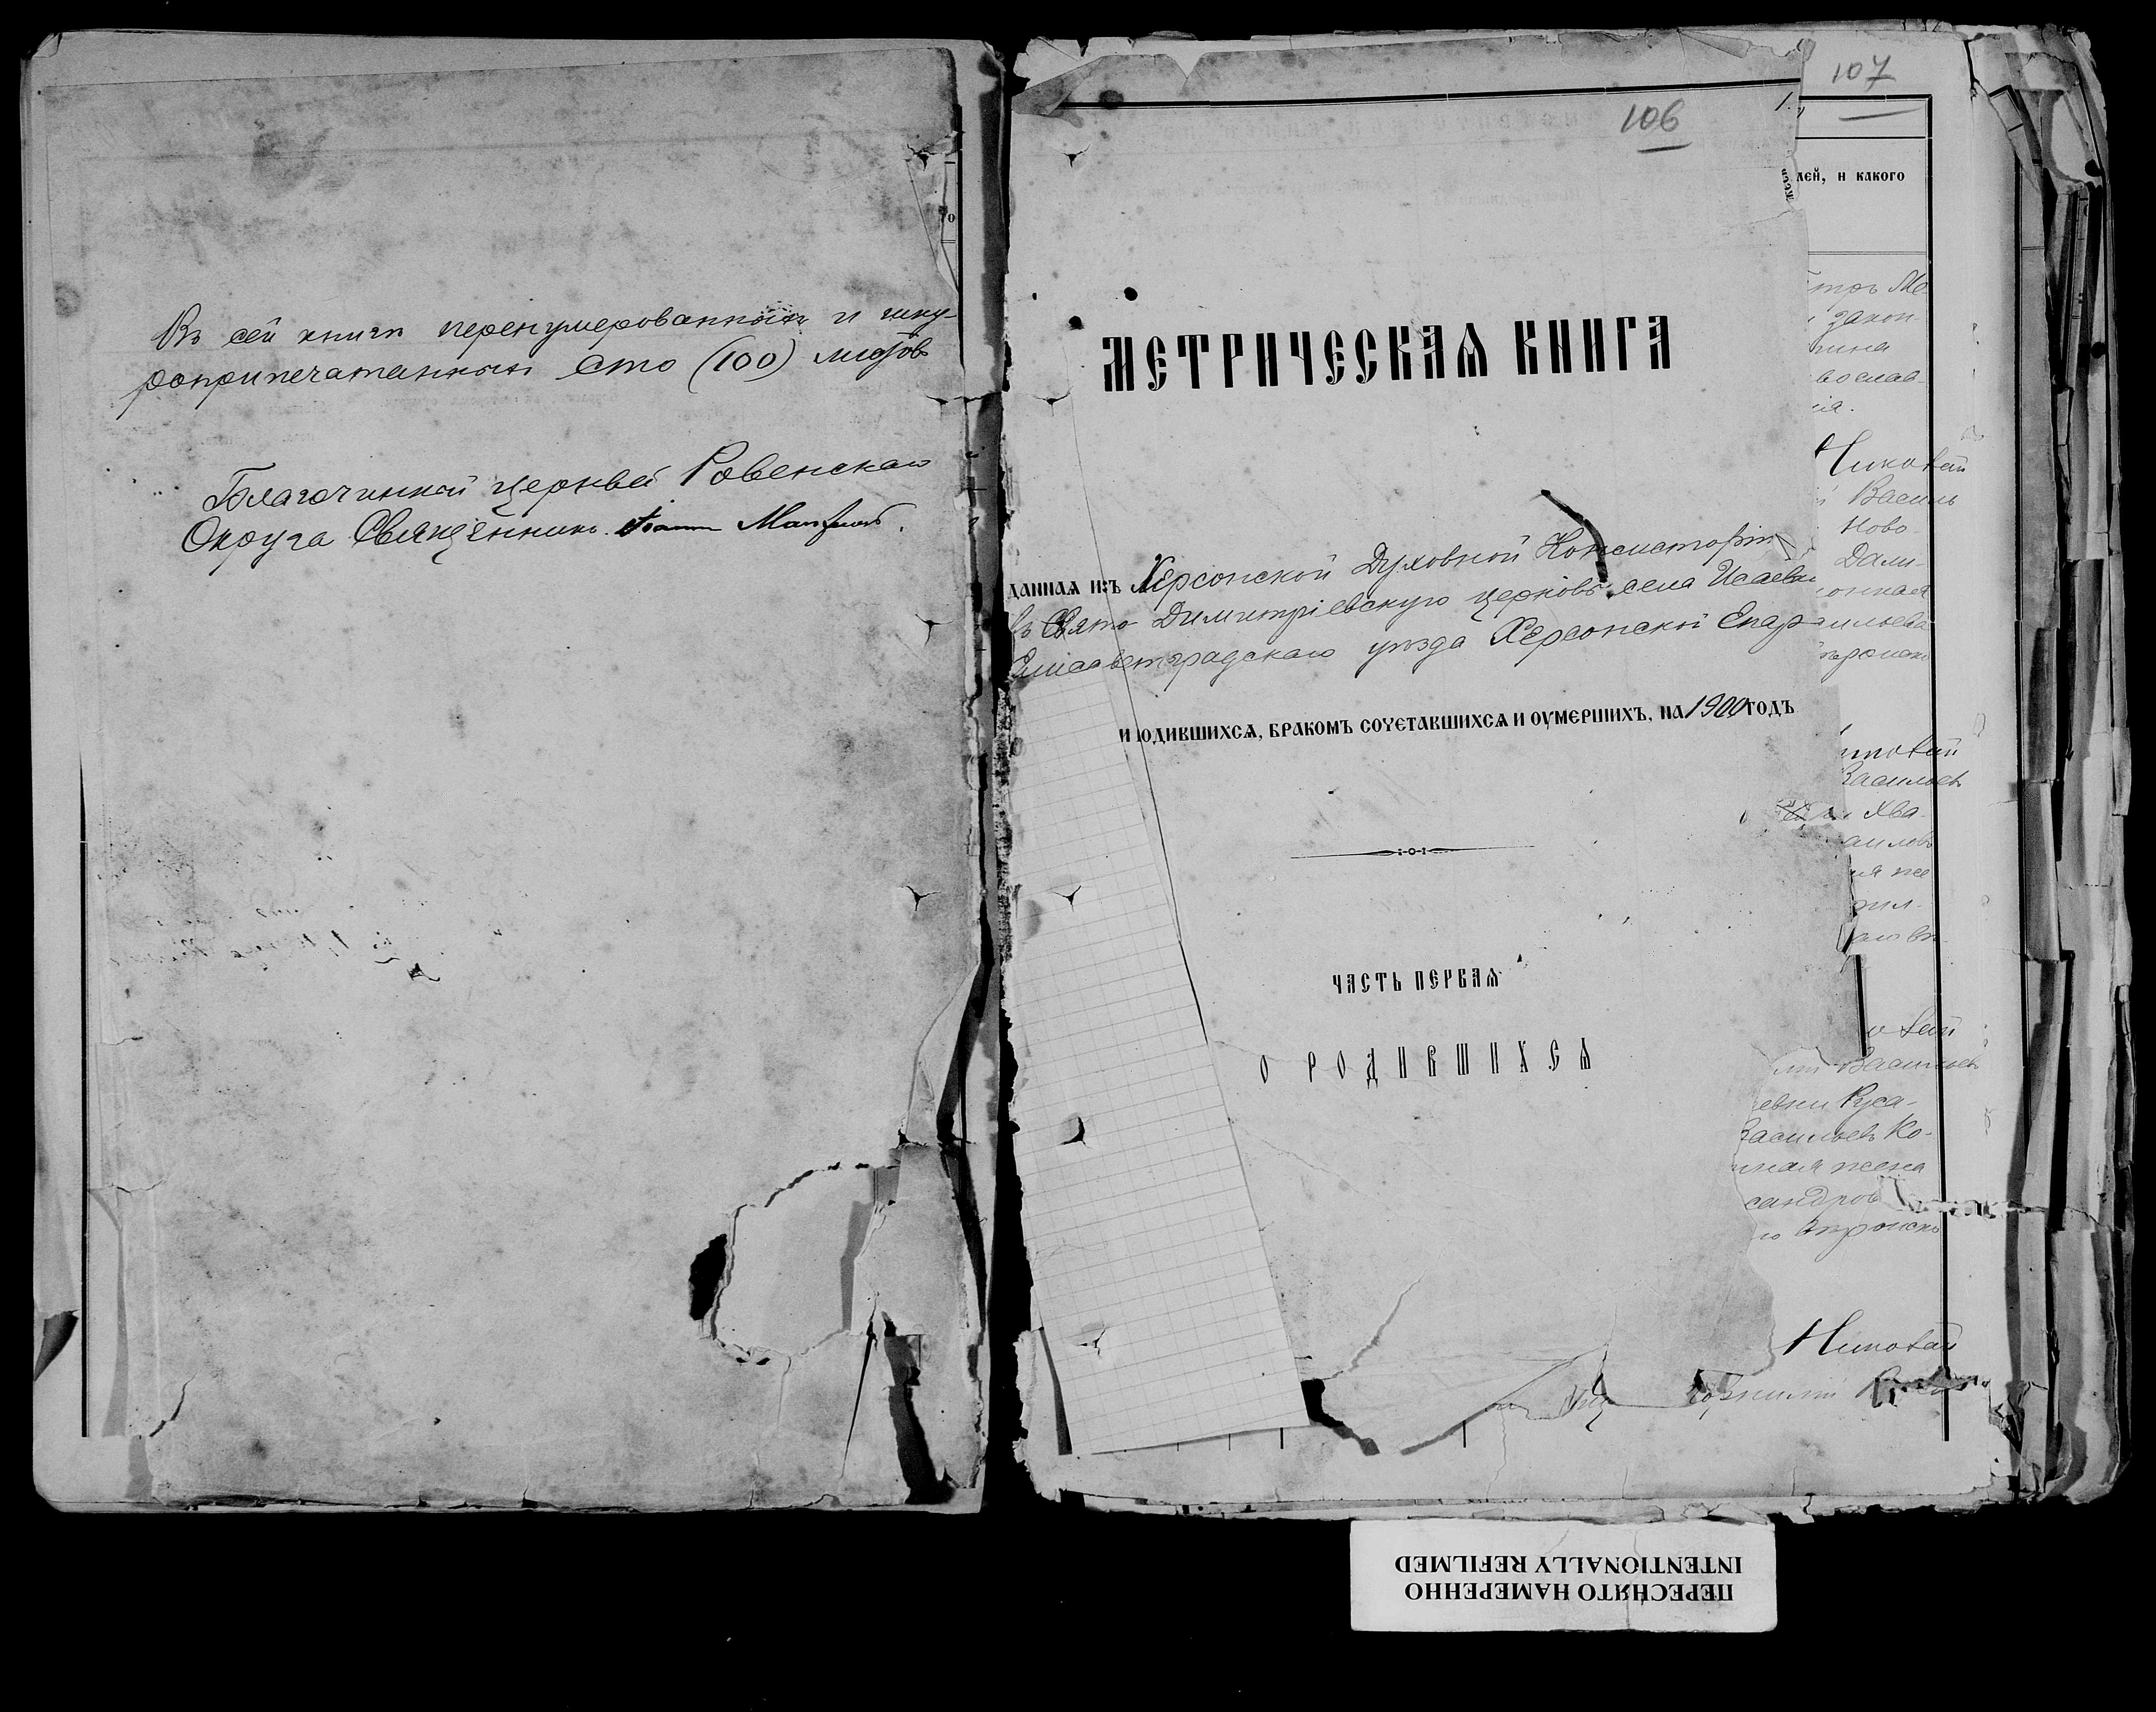 Въ сей книгѣ перенумерованныхъ и шну-
роприпечатанныхъ сто (100) листовъ
Благочинный церквей Ровенскаго
Округа Священникъ Іоаннъ
106
107
лей, и какого
МЕТРИЧЕСКАѦ КНИГА
даннаѧ изъ Херсонской Духовной Консисторіи
въ Свято Димитріевскую церковь села Исаевки
Елисаветградскаго уѣзда Херсонской Епар
родившихсѧ, бракомъ сочетавшихсѧ и оумершихъ, на 1900 годъ
ЧАСТЬ ПЕРВАѦ
О РОДИВШИХСѦ
закон-
вослав-
Николай
Василь
Ново-
Дани-
Васильев
Хва-
Васильевъ
Руса-
Васильевъ Ко-
жена
сандров
Николай
ПЕРЕСНЯТО НАМЕРЕННО
INTENTIONALLY REFILMED